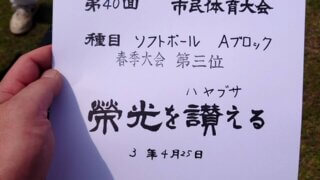 第40回 市民体育大会
種目 ソフトボール Aブロック
春季大会 第三位
ハヤブサ
栄光を讃える
3年4月25日